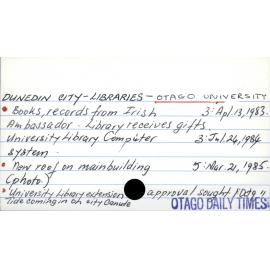 DUNEDIN CITY - LIBRARIES - OTAGO UNIVERSITY
• Books, records from Irish 3: Apl. 13, 1983.
Ambassador - Library receives gifts.
University Library Computer 3: Jul. 26, 1984
system.
• New roof on main building 5: Mar. 21, 1985.
(photo)
• University Library extension approval sought
Tide coming in on city
OTAGO DAILY TIMES